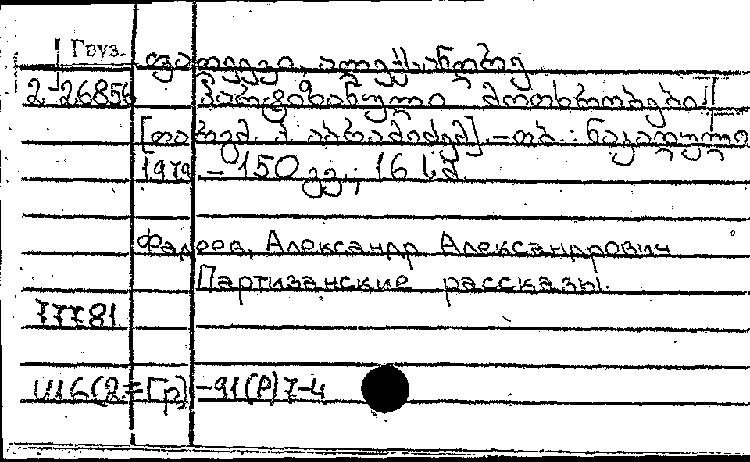 Груз.
ფადეევი, ალექსანდრე
2-26856 პარტიზანული მოთხრობები
[თარგმ. პ. აბრამიძემ] – თბ.: ნაკადული
1979 – 150 გვ.; 16 სმ.
Фадеев, Александр Александрович
Партизанские рассказы.
77781
Ш6(2=Гр)-91(Р)7-4